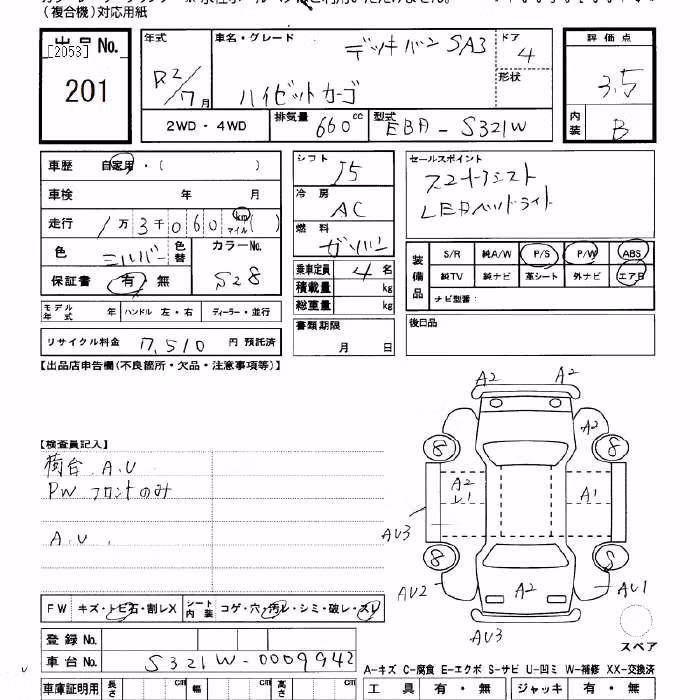 （複合機）対応用紙
出品No.
[2053]
201
年式
R2/7月
車名・グレード
デッキバン SA3
ハイゼットカーゴ
ドア
4
形状
評価点
3.5
内装
B
2WD・4WD
排気量 660cc
型式 EBA-S321W
車歴 自家用・（ ）
車検 年 月
走行 1万3千060 km マイル（ ）
色 シルバー 色替
カラーNo.
S28
保証書 有 無
シフト
I5
冷房
AC
燃料
ガソリン
乗車定員 4名
積載量 kg
総重量 kg
書類期限
月 日
セールスポイント
スマートアシスト
LEDヘッドライト
装備品
S/R 純A/W P/S P/W ABS
純TV 純ナビ 革シート 外ナビ エアB
ナビ型番：
後日品
モデル年式 年 ハンドル 左・右 ディーラー・並行
リサイクル料金 7,510 円 預託済
【出品店申告欄（不良箇所・欠品・注意事項等）】
【検査員記入】
荷台 A.U
PW フロントのみ
A.U.
FW キズ・トビ石・割レX
シート内装 コゲ・穴・汚レ・シミ・破レ・スレ
登録No.
車台No. S321W-0009942
車庫証明用 長さ cm 幅 cm 高さ cm
A2 A2
A2
8 8
A2
レ1
A1
AU3
8 S
AU2
A2
AU1
AU3
スペア
A-キズ C-腐食 E-エクボ S-サビ U-凹ミ W-補修 XX-交換済
工具 有・無 ジャッキ 有・無